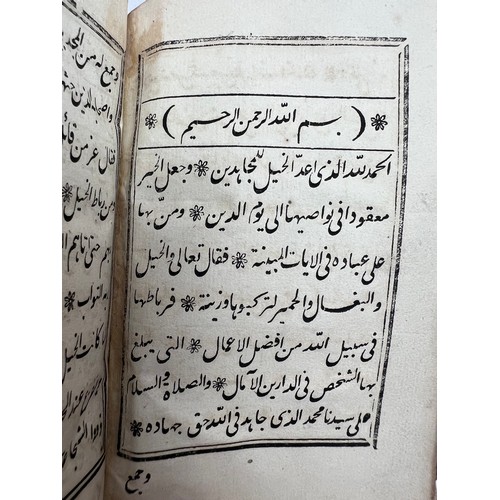 بسم الله الرحمن الرحيم
الحمد لله الذى اعد الخيل للمجاهدين ❋ وجعل الخير
معقودا فى نواصيها الى يوم الدين ❋ ومن بها
على عباده فى الايات المبينة ❋ فقال تعالى والخيل
والبغال والحمير لتركبوها وزينة ❋ فرباطها
فى سبيل الله من افضل الاعمال ❋ التى يبلغ
بها الشخص فى الدارين الآمال ❋ والصلاة والسلام
على سيدنا محمد الذى جاهد فى الله حق جهاده ❋
وجمع
وجمع له من
فقال عز من قائل
من رباط الخيل
كانت الخيل